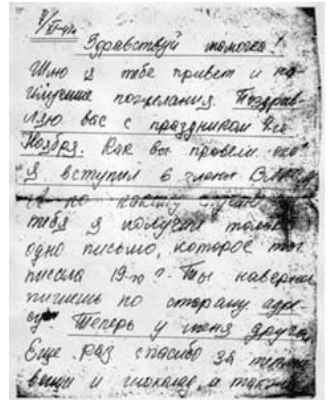 Здравствуй мамочка!
Шлю я тебе привет и на-
илучшие пожелания. Поздрав-
ляю вас с праздником 7го
Ноября. Как вы провели его
я вступил в члены ВЛКСМ
тебя я получил только
одно письмо, которое ты
писала 19-го Ты наверно
пишешь по старому адре-
су Теперь у меня другой
Еще раз спасибо за теплые
вещи и шоколад, а также